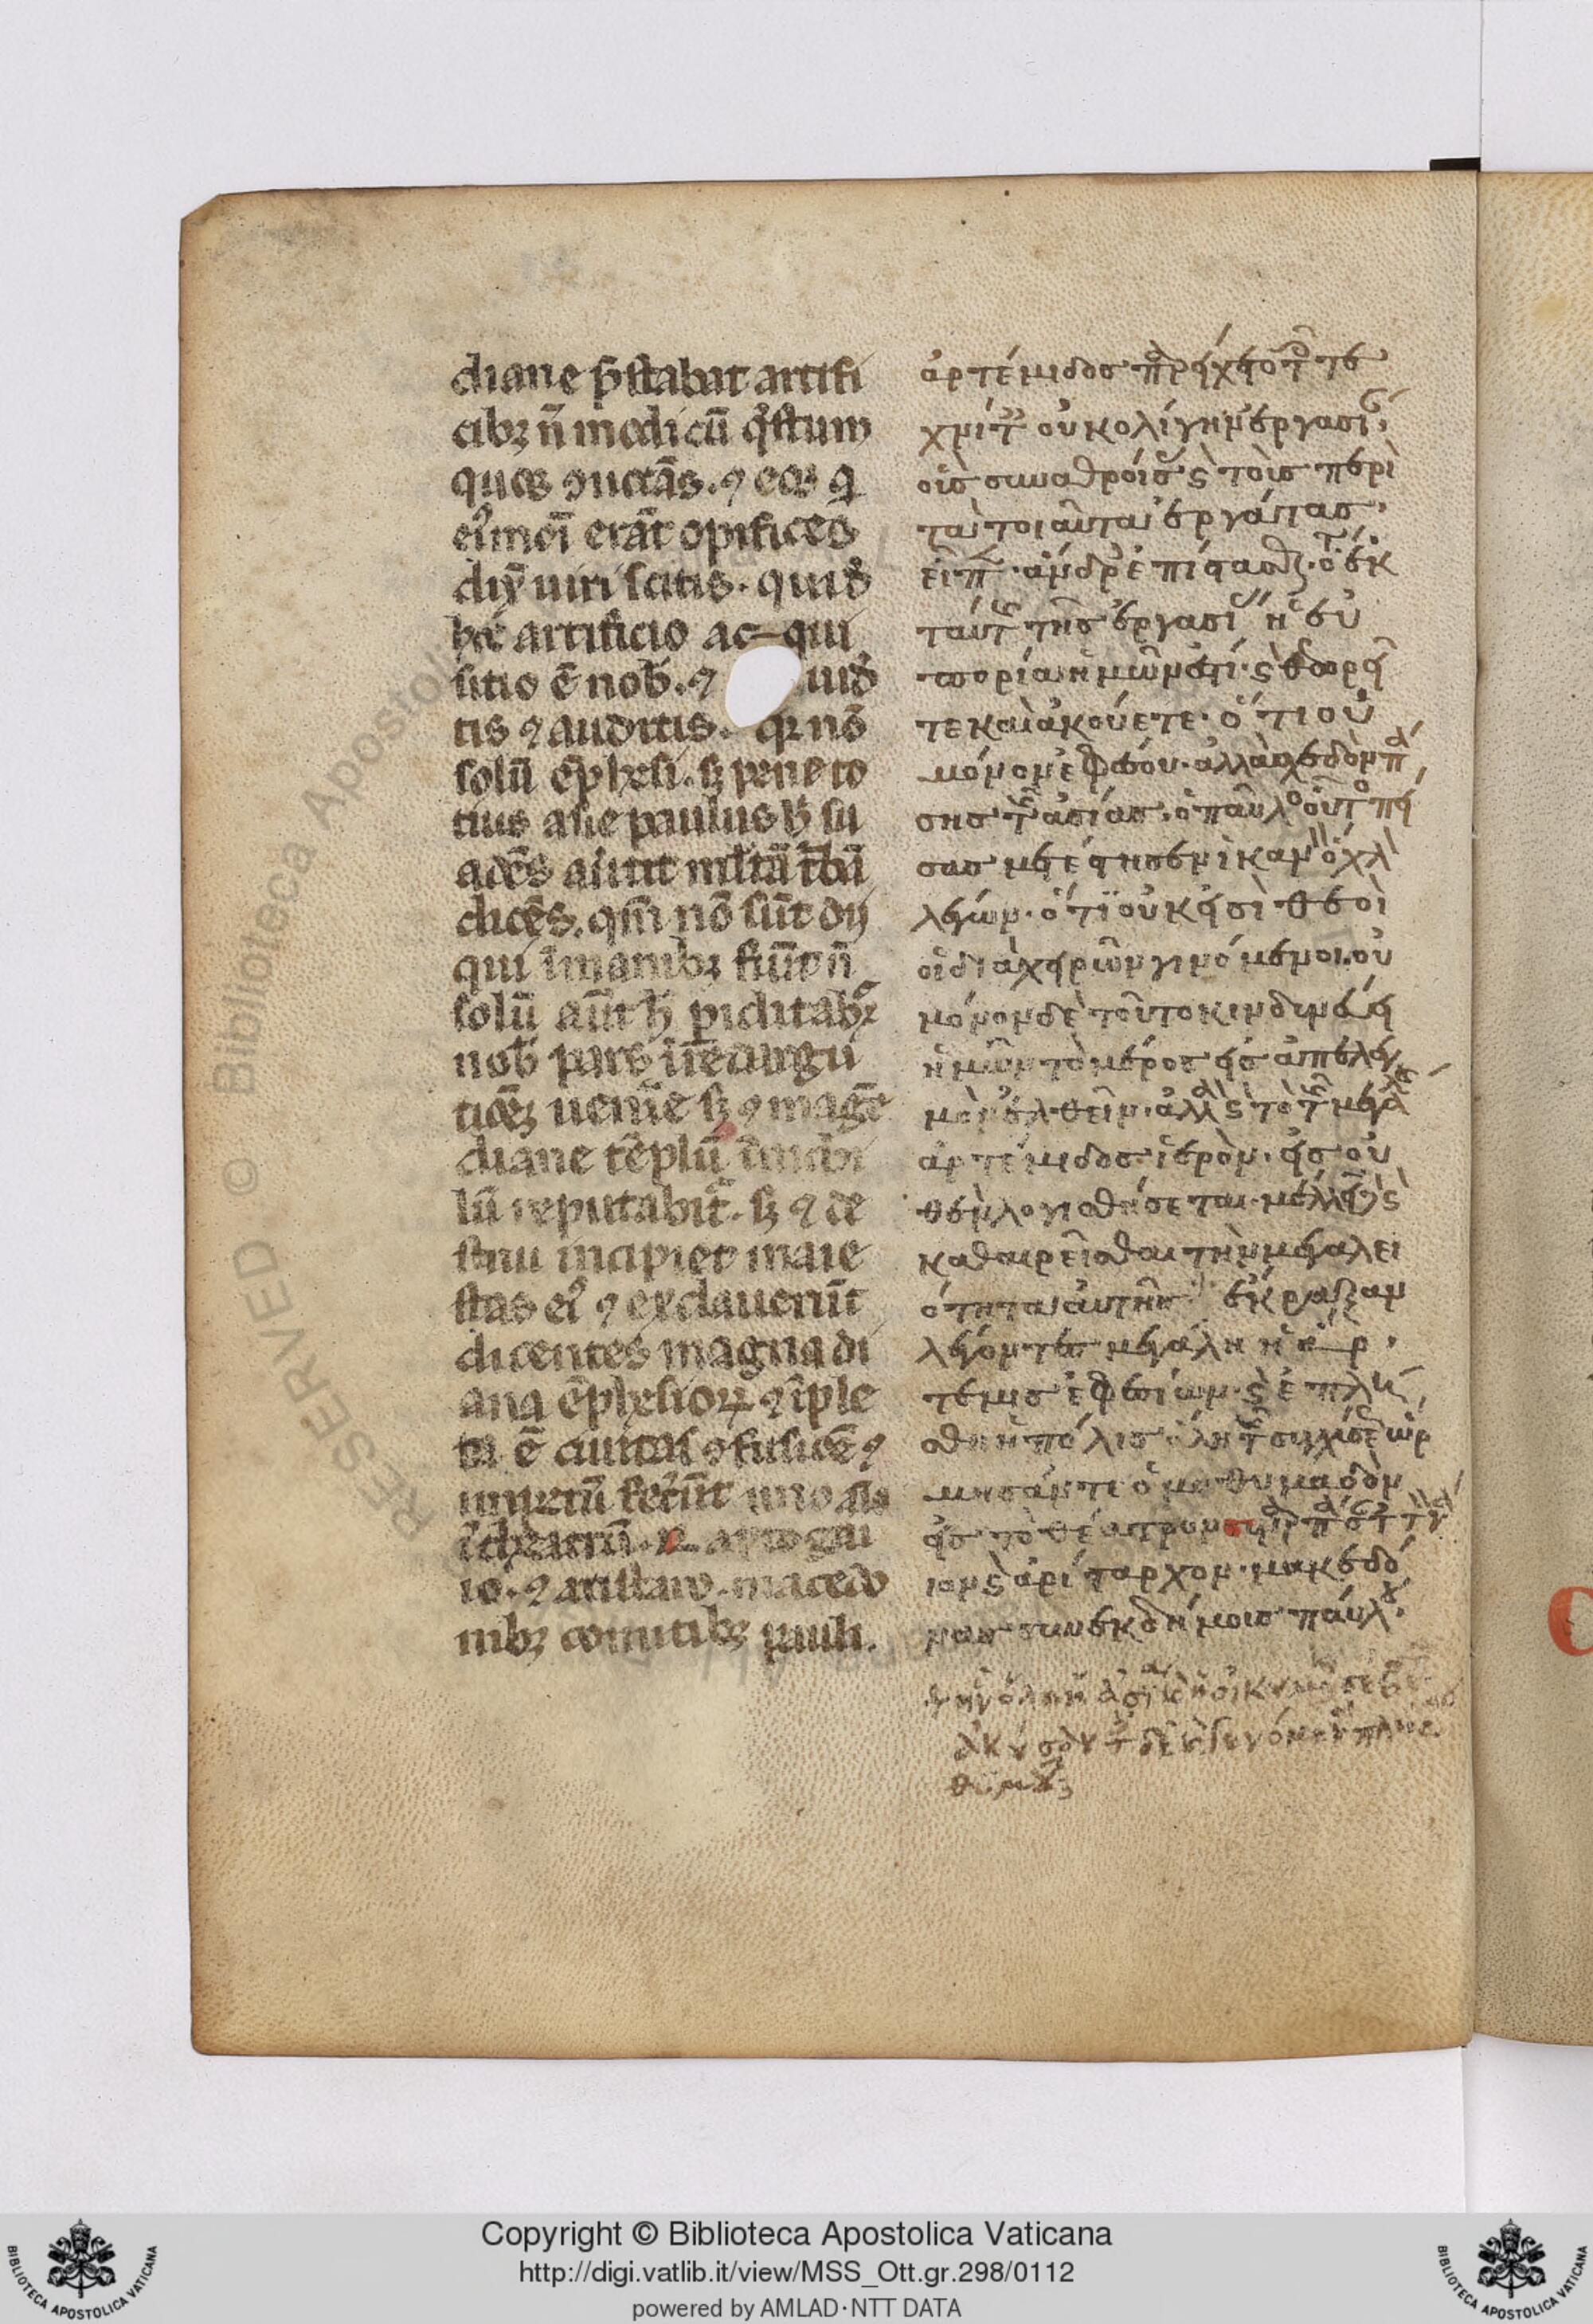 diane p̄stabat artifi
cibꝫ n̄ modicū q̄stum
quos ꝯuocās. ⁊ eos q̄
eiꝰmōi erāt opifices
dix̄ uiri scitis. quia d̄
hͨ artificio ac qui
sitio ē nob̄. ⁊ uid̄
tis ⁊ auditis. qꝛ nō
solū ep̄hesi. sꝫ pene to
tius asie paulus h̄ su
adēs auertit multā turbā
dicēs. qm̄ nō sūt dij
qui ī manibꝫ fiūt n̄
solū aūt h̄ piclitabr̄
nob̄ pars ī redargu
tiōeꝫ uenire sꝫ ⁊ magē
diane tēplū ī nichi
lū reputabit̄. sꝫ ⁊ de
strui incipiet maie
stas eiꝰ ⁊ exclauerūt
dicentes magna di
ana ep̄hesioꝝ ⁊ īple
ta ē ciuitas ꝯfusiōe ⁊
impetū fecerūt uno aīo
ī theatrū. rapto gai
io. ⁊ aristarco. macedo
nibꝫ comitibꝫ pauli.
ἀρτέμιδος παρείχετο τοῖς τε
χνίταις οὐκ ὀλίγην ἐργασίαν·
οὓς συναθροίσας ϛ τοὺς περὶ
τὰ τοιαῦτα ἐργάτας·
εἶπεν· ἄνδρες ἐπίστασθε· ὅτι ἐκ
ταύτης τῆς ἐργασίας ἡ εὐ
πορία ἡμῶν ἐστι· ϛ θεωρεῖ
τε καὶ ἀκούετε· ὅτι οὐ
μόνον ἐφέσου· ἀλλὰ σχεδὸν πά
σης τῆς ἀσίας· ὁ παῦλος οὗτος πεί
σας μετέστησεν ἱκανὸν ὄχλον
λέγων· ὅτι οὐκ εἰσὶ θεοὶ
οἱ διὰ χειρῶν γινόμενοι· οὐ
μόνον δὲ τοῦτο κινδυνεύει
ἡμῶν τὸ μέρος εἰς ἀπελεγ
μὸν ἐλθεῖν· ἀλλὰ ϛ τὸ τῆς μεγάλης
ἀρτέμιδος ἱερὸν· εἰς οὐ
θὲν λογισθήσεται· μέλλειν ϛ
καθαιρεῖσθαι τὴν μεγαλει
ότητα αὐτῆς ἔκραζαν
λέγοντες μεγάλη ἡ ἄρ
τεμις ἐφεσίων· ϛ ἐπλή
σθη ἡ πόλις ὅλη τῆς συγχύσεως ὥρ
μησάν τε ὁμοθυμαδὸν
εἰς τὸ θέατρον συναρπάσαντες γά
ιον ϛ ἀρίσταρχον· μακεδό
νας συνεκδήμους παύλου·